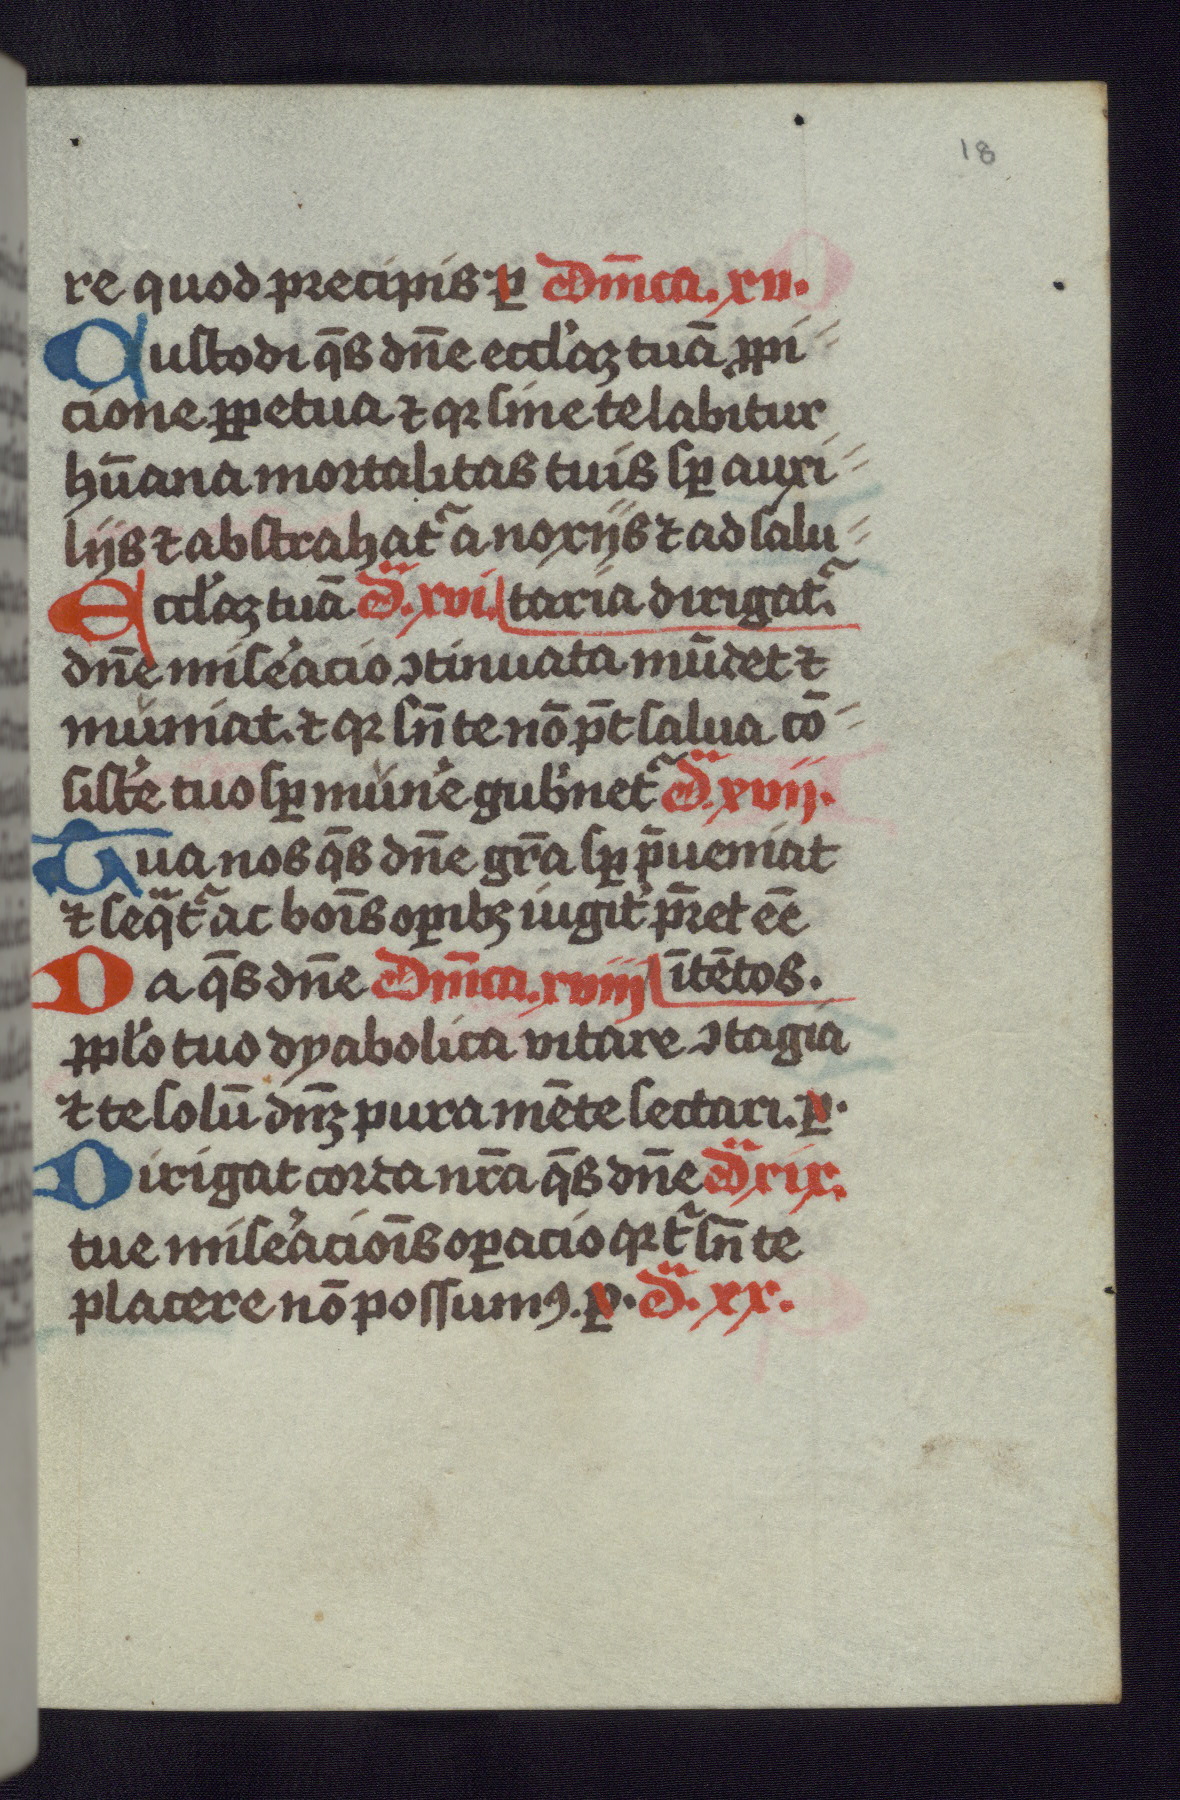 18
re quod precipis. p̲ Dn̄ica. xv.
Custodi q̄s dn̄e eccl'aꝫ tuā ꝓpi⸗
cione ꝑpetua ⁊ qꝛ sine te labitur
hūana mortalitas tuis sꝑ auxi⸗
lijs ⁊ abstrahat᷑ a noxijs ⁊ ad salu⸗
Eccl'aꝫ tuā D̄. xvi. taria dirigat᷑.
dn̄e mise'acio ↄtinuata mūdet ⁊
muniat. ⁊ qꝛ sn̄ te nō p̄t salua cō⸗
sist'e tuo sꝑ mun'e gub'net᷑ D̄. xvij.
Tua nos q̄s dn̄e gr̄a sꝑ p̄ueniat
⁊ seq̄t᷑ ac boīs oꝑibꝫ iugit' p̄ret eē
Da q̄s dn̄e Dn̄ica. xviij ītētos.
ppl'o tuo dyabolica vitare ↄtagia
⁊ te solū dn̄ꝫ pura mēte sectari. p̲.
Dirigat corda nr̄a q̄s dn̄e D̄. xix.
tue mise'acioīs oꝑacio qꝛ t᷑ sn̄ te
placere nō possumꝰ. p̲. D̄. xx.